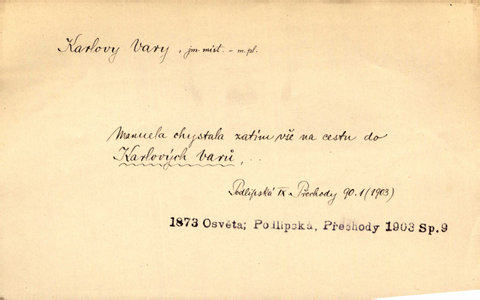 Karlovy Vary, jm. míst. – m. pl.
Manuela chystala zatím vše na cestu do
Karlových Varů, ..
Podlipská IX Přechody 90.1 (1903)
1873 Osvěta; Podlipská, Přechody 1903 Sp. 9